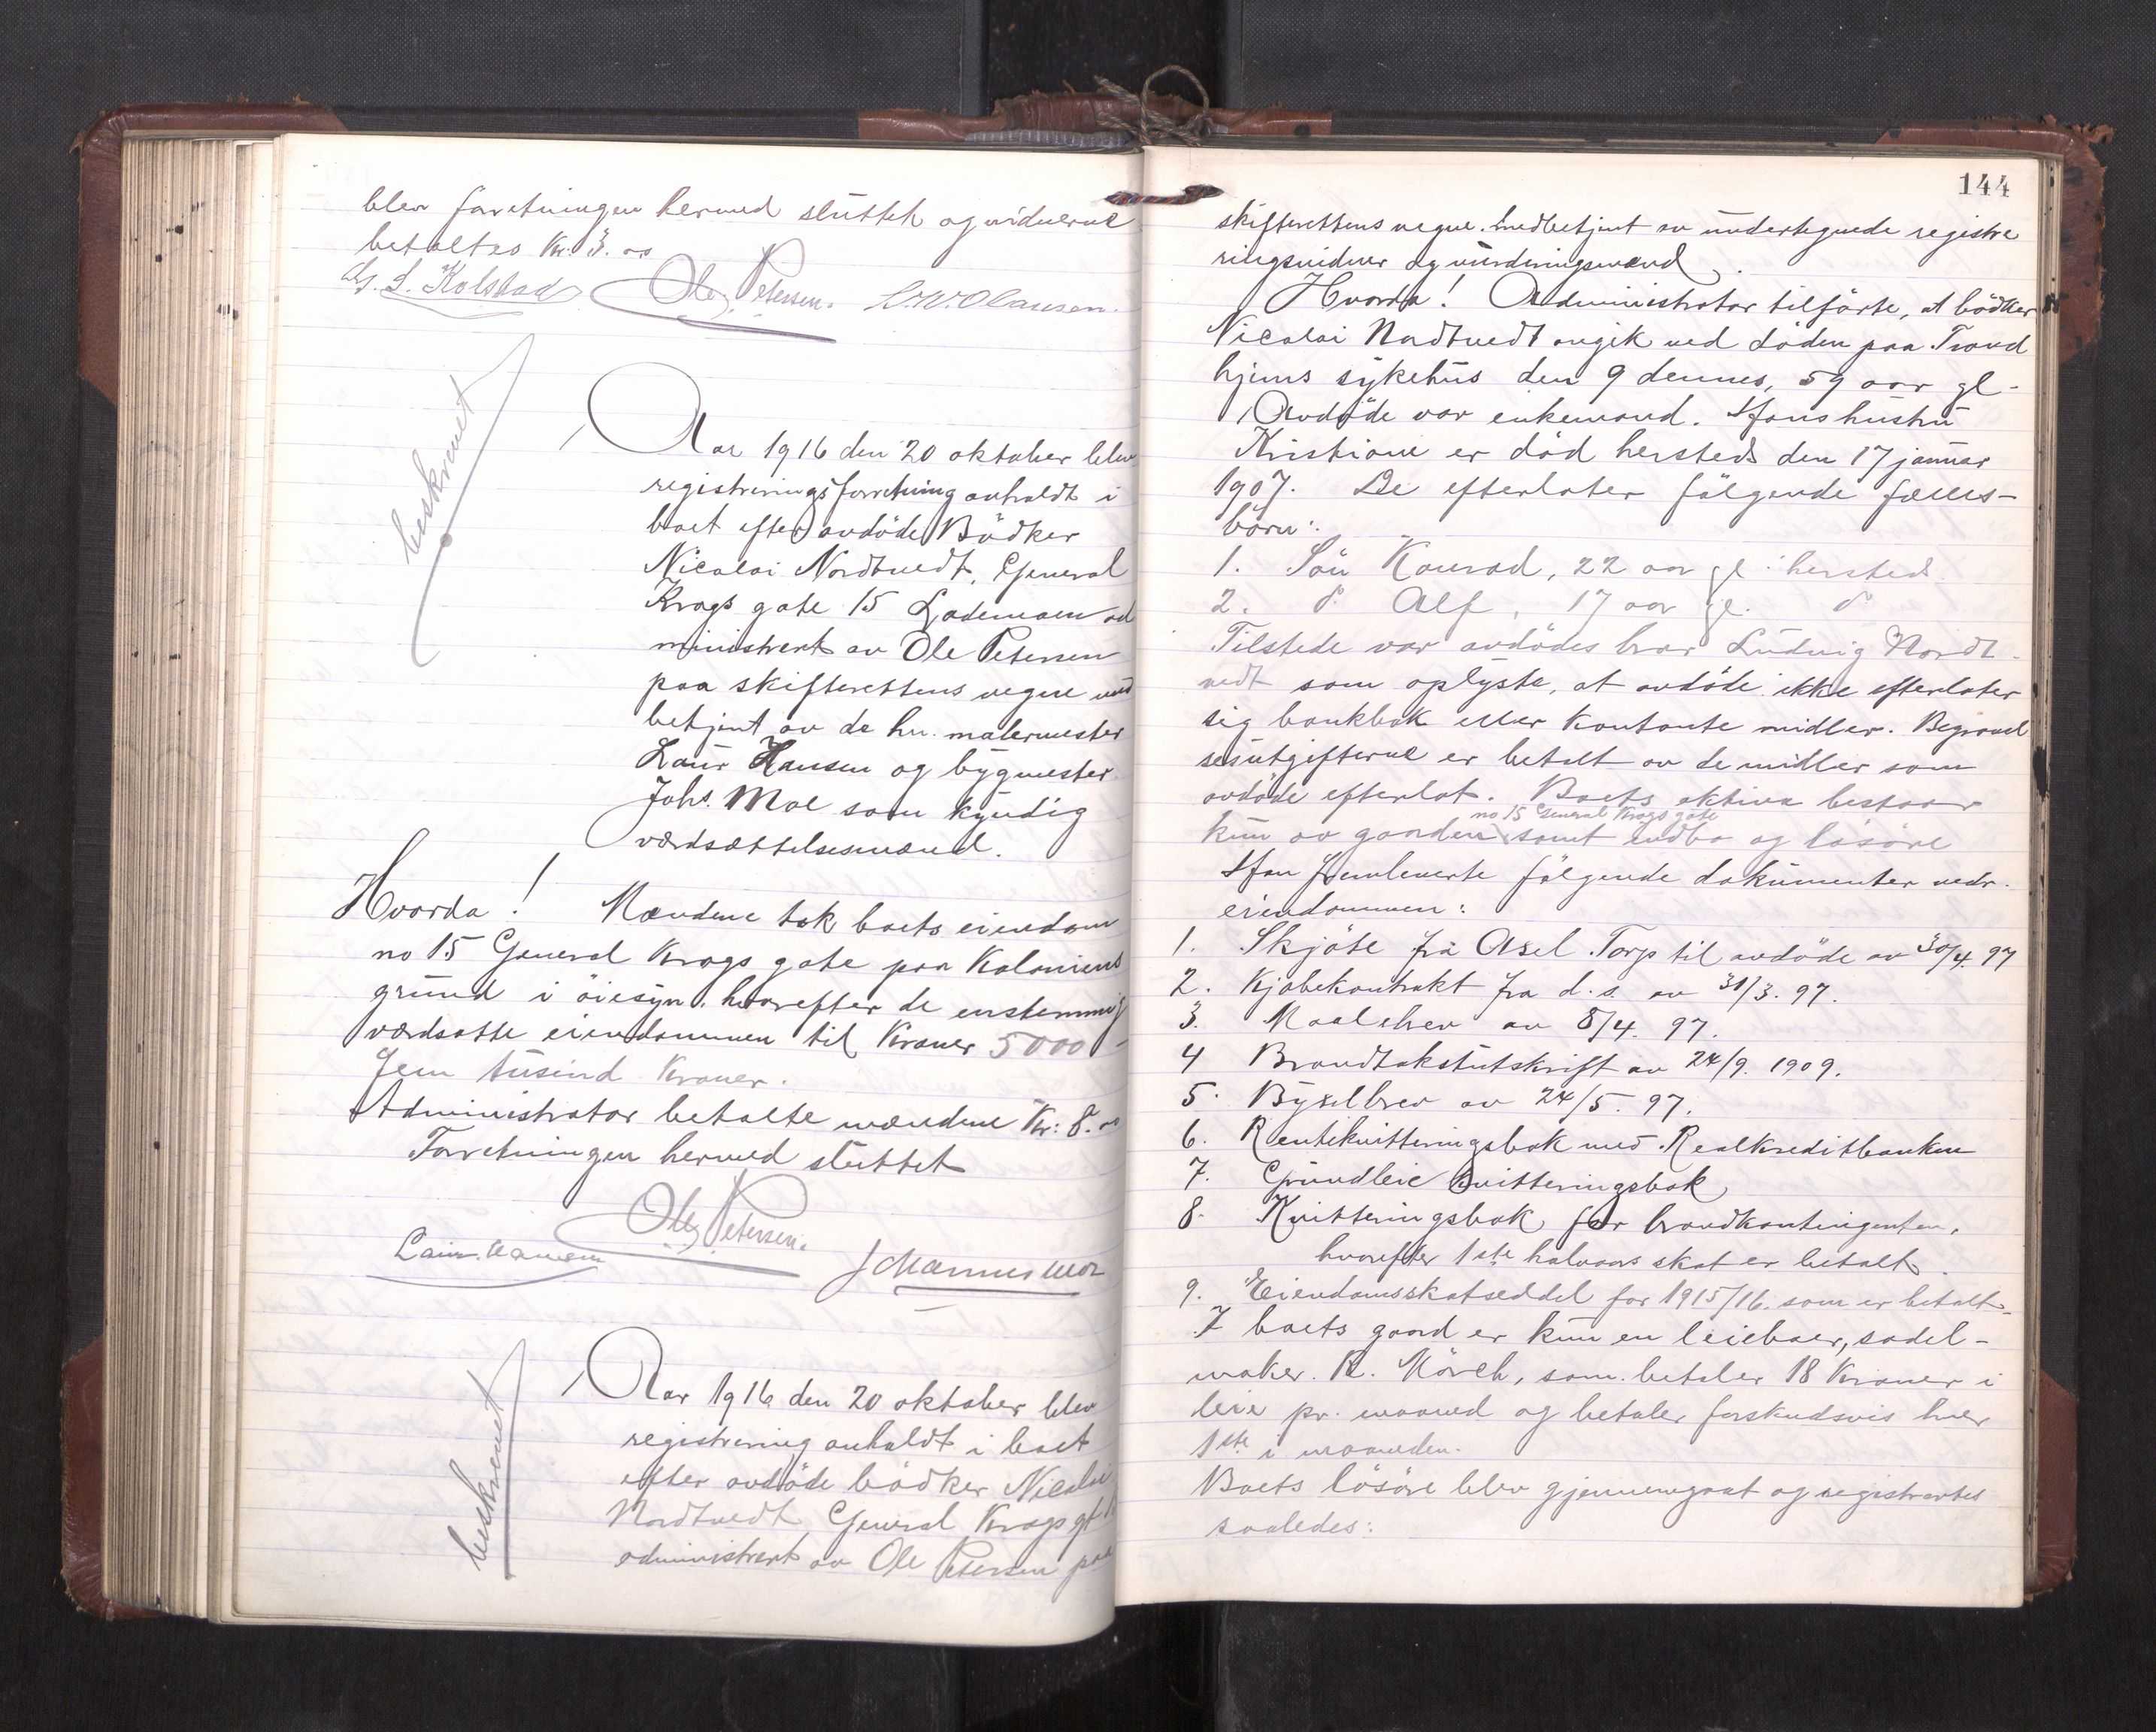 blev forretningen hermed sluttet og vidnerne
betaltes Kr. 3.00
L. Kolstad Ole Petersen. C.W. Clausen.
beskrevet
Aar 1916 den 20 oktober blev
registreringsforretning avholdt i
boet efter avdöde Bödker
Nicolai Nordtvedt, General
Krags gate 15 Lademoen ad
ministrert av Ole Petersen
paa skifterettens vegne med
betjent av de hr. malermester
Laur Hansen og bygmester
Johs. Moe som kyndig
værdsættelsesmænd.
Hvorda! Mændene tok boets eiendom
no 15 General Krags gate paa Koloniens
grund i öiesyn, hvorefter de enstemmig
værdsatte eiendommen til Kroner 5000 -
Fem tusind Kroner.
Administrator betalte mændene Kr: 8.00
Forretningen hermed sluttet
Ole Petersen.
Laur. Hansen Johannes Moe
beskrevet
Aar 1916 den 20 oktober blev
registrering avholdt i boet
efter avdöde bödker Nicolai
Nordtvedt General Krags gt 15
administrert av Ole Petersen paa
144
skifterettens vegne. medbetjent av undertegnede registre
ringsvidner og vurderingsmænd.
Hvorda! Administrator tilförte, at bödker
Nicolai Nordtvedt avgik ved döden paa Trond
hjems sykehus den 9 dennes, 59 aar gl-
Avdöde var enkemand. Hans hustru
Kristiane er död hersteds den 17 januar
1907. De efterlater fölgende fælles-
börn:
1. Sön Konrad, 22 aar gl. hersteds.
2. do. Alf, 17 aar gl. do
Tilstede var avdödes bror Ludvig Nordt-
vedt som oplyste, at avdöde ikke efterlater
sig bankbok eller kontante midler. Begravel
sesutgifterne er betalt av de midler som
avdöde efterlot. Boets aktiva bestaar
no 15 General Krags gate
kun av gaarden samt indbo og lösöre
Han fremleverte fölgende dokumenter vedr.
eiendommen:
1. Skjöte fra Axel Torp til avdöde av 30/4. 97
2. Kjöbekontrakt fra d.s. av 31/3. 97.
3. Maalebrev av 8/4. 97.
4 Brandtakstutskrift av 24/9. 1909.
5. Bygselbrev av 24/5. 97.
6. Rentekvitteringsbok med Realkreditbanken
7. Grundleie kvitteringsbok
8. Kvitteringsbok for brandkontingenten,
hvorefter 1ste halvaars skat er betalt.
9. Eiendomsskatseddel for 1915/16. som er betalt.
I boets gaard er kun en leieboer, sadel-
maker. R. Mörch, som betaler 18 Kroner i
leie pr. maaned og betaler forskudsvis hver
1ste i maaneden.
Boets lösöre blev gjennemgaat og registrertes
saaledes: